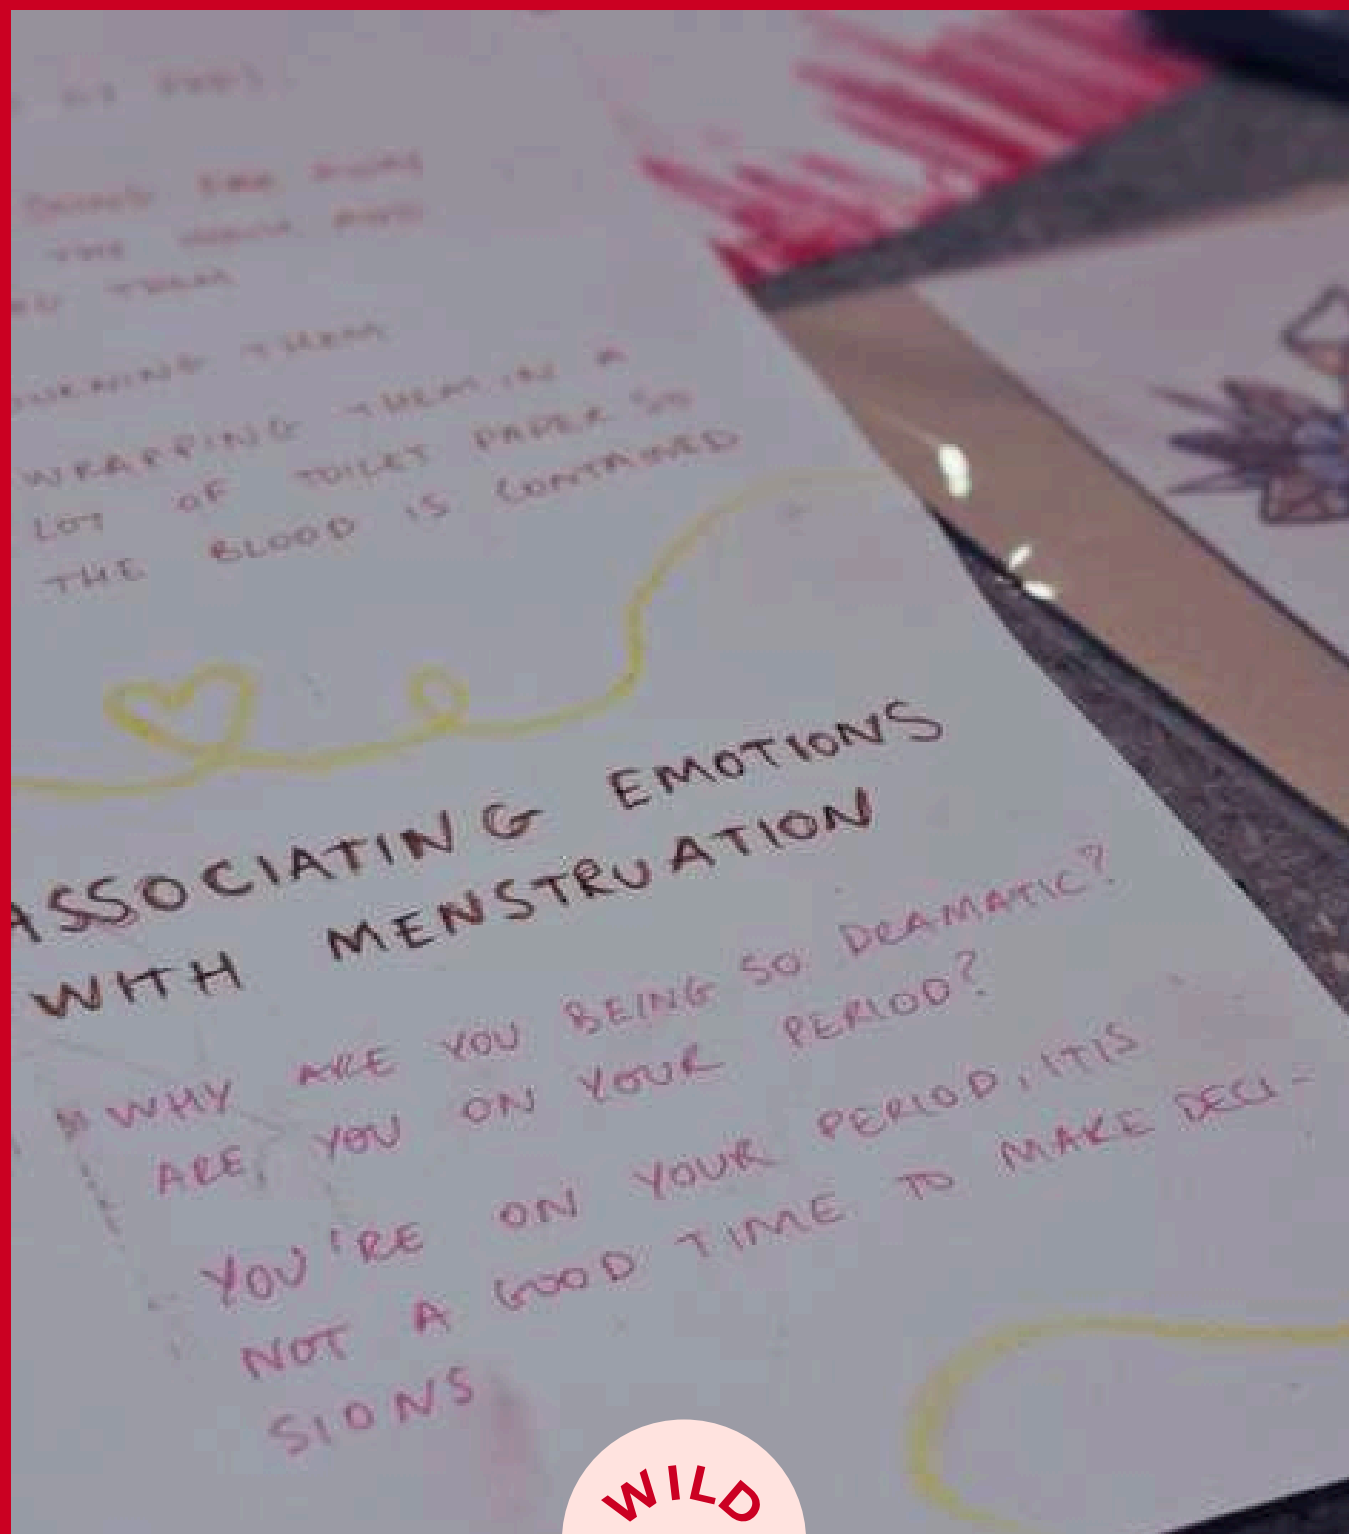 THE
THEM
BURNING THEM
WRAPPING THEM IN A
LOT OF TOILET PAPER SO
THE BLOOD IS CONTAINED
ASSOCIATING EMOTIONS
WITH MENSTRUATION
WHY ARE YOU BEING SO DRAMATIC?
ARE YOU ON YOUR PERIOD?
YOU'RE ON YOUR PERIOD, IT IS
NOT A GOOD TIME TO MAKE DECI-
SIONS
WILD